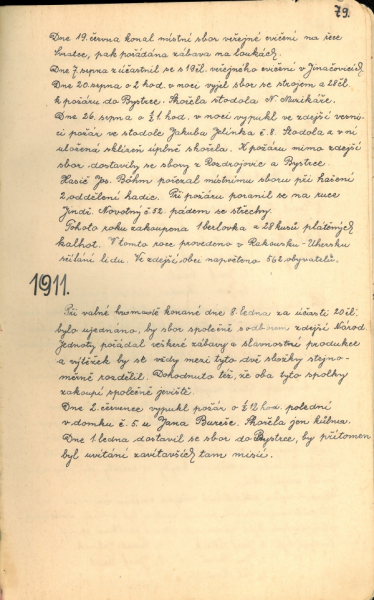 79.
Dne 19. června konal místní sbor veřejné cvičení na řece
Svratce, pak pořádána zábava na loukách.
Dne 7. srpna zúčastnil se s 19 čl. veřejného cvičení v Jinačovicích.
Dne 20. srpna o 2 hod. v noci vyjel sbor se strojem a 28 čl.
k požáru do Bystrce. Shořela stodola N. Munikáře.
Dne 26. srpna o ½ 1 hod. v noci vypukl ve zdejší vesni-
ci požár ve stodole Jakuba Jelínka č. 8. Stodola a v ní
uložená sklizeň úplně shořela. K požáru mimo zdejší
sbor dostavily se sbory z Rozdrojovic a Bystrce.
Hasič Jos. Böhm pořezal místnímu sboru při hašení
2 oddělení hadic. Při požáru poranil se na ruce
Jindř. Novotný č. 52. pádem se střechy.
Toho to roku zakoupena 1 berlovka a 28 kusů plátěných
kalhot. V tomto roce provedeno v Rakousku-Uhersku
sčítání lidu. Ve zdejší obci napočteno 562 obyvatelů.
1911.
Při valné hromadě konané dne 8. ledna za účasti 20 čl.
bylo ujednáno, by sbor společně s odborem zdejší Národ.
Jednoty pořádal veškeré zábavy a slavnostní produkce
a výtěžek by se vždy mezi tyto dvě složky stejno-
měrně rozdělil. Dohodnuto též, že oba tyto spolky
zakoupí společně jeviště.
Dne 2. července vypukl požár o ½ 12 hod. polední
v domku č. 5. u Jana Bureše. Shořela jen kůlna.
Dne 1. ledna dostavil se sbor do Bystrce, by přítomen
byl uvítání zavítavších tam misií.